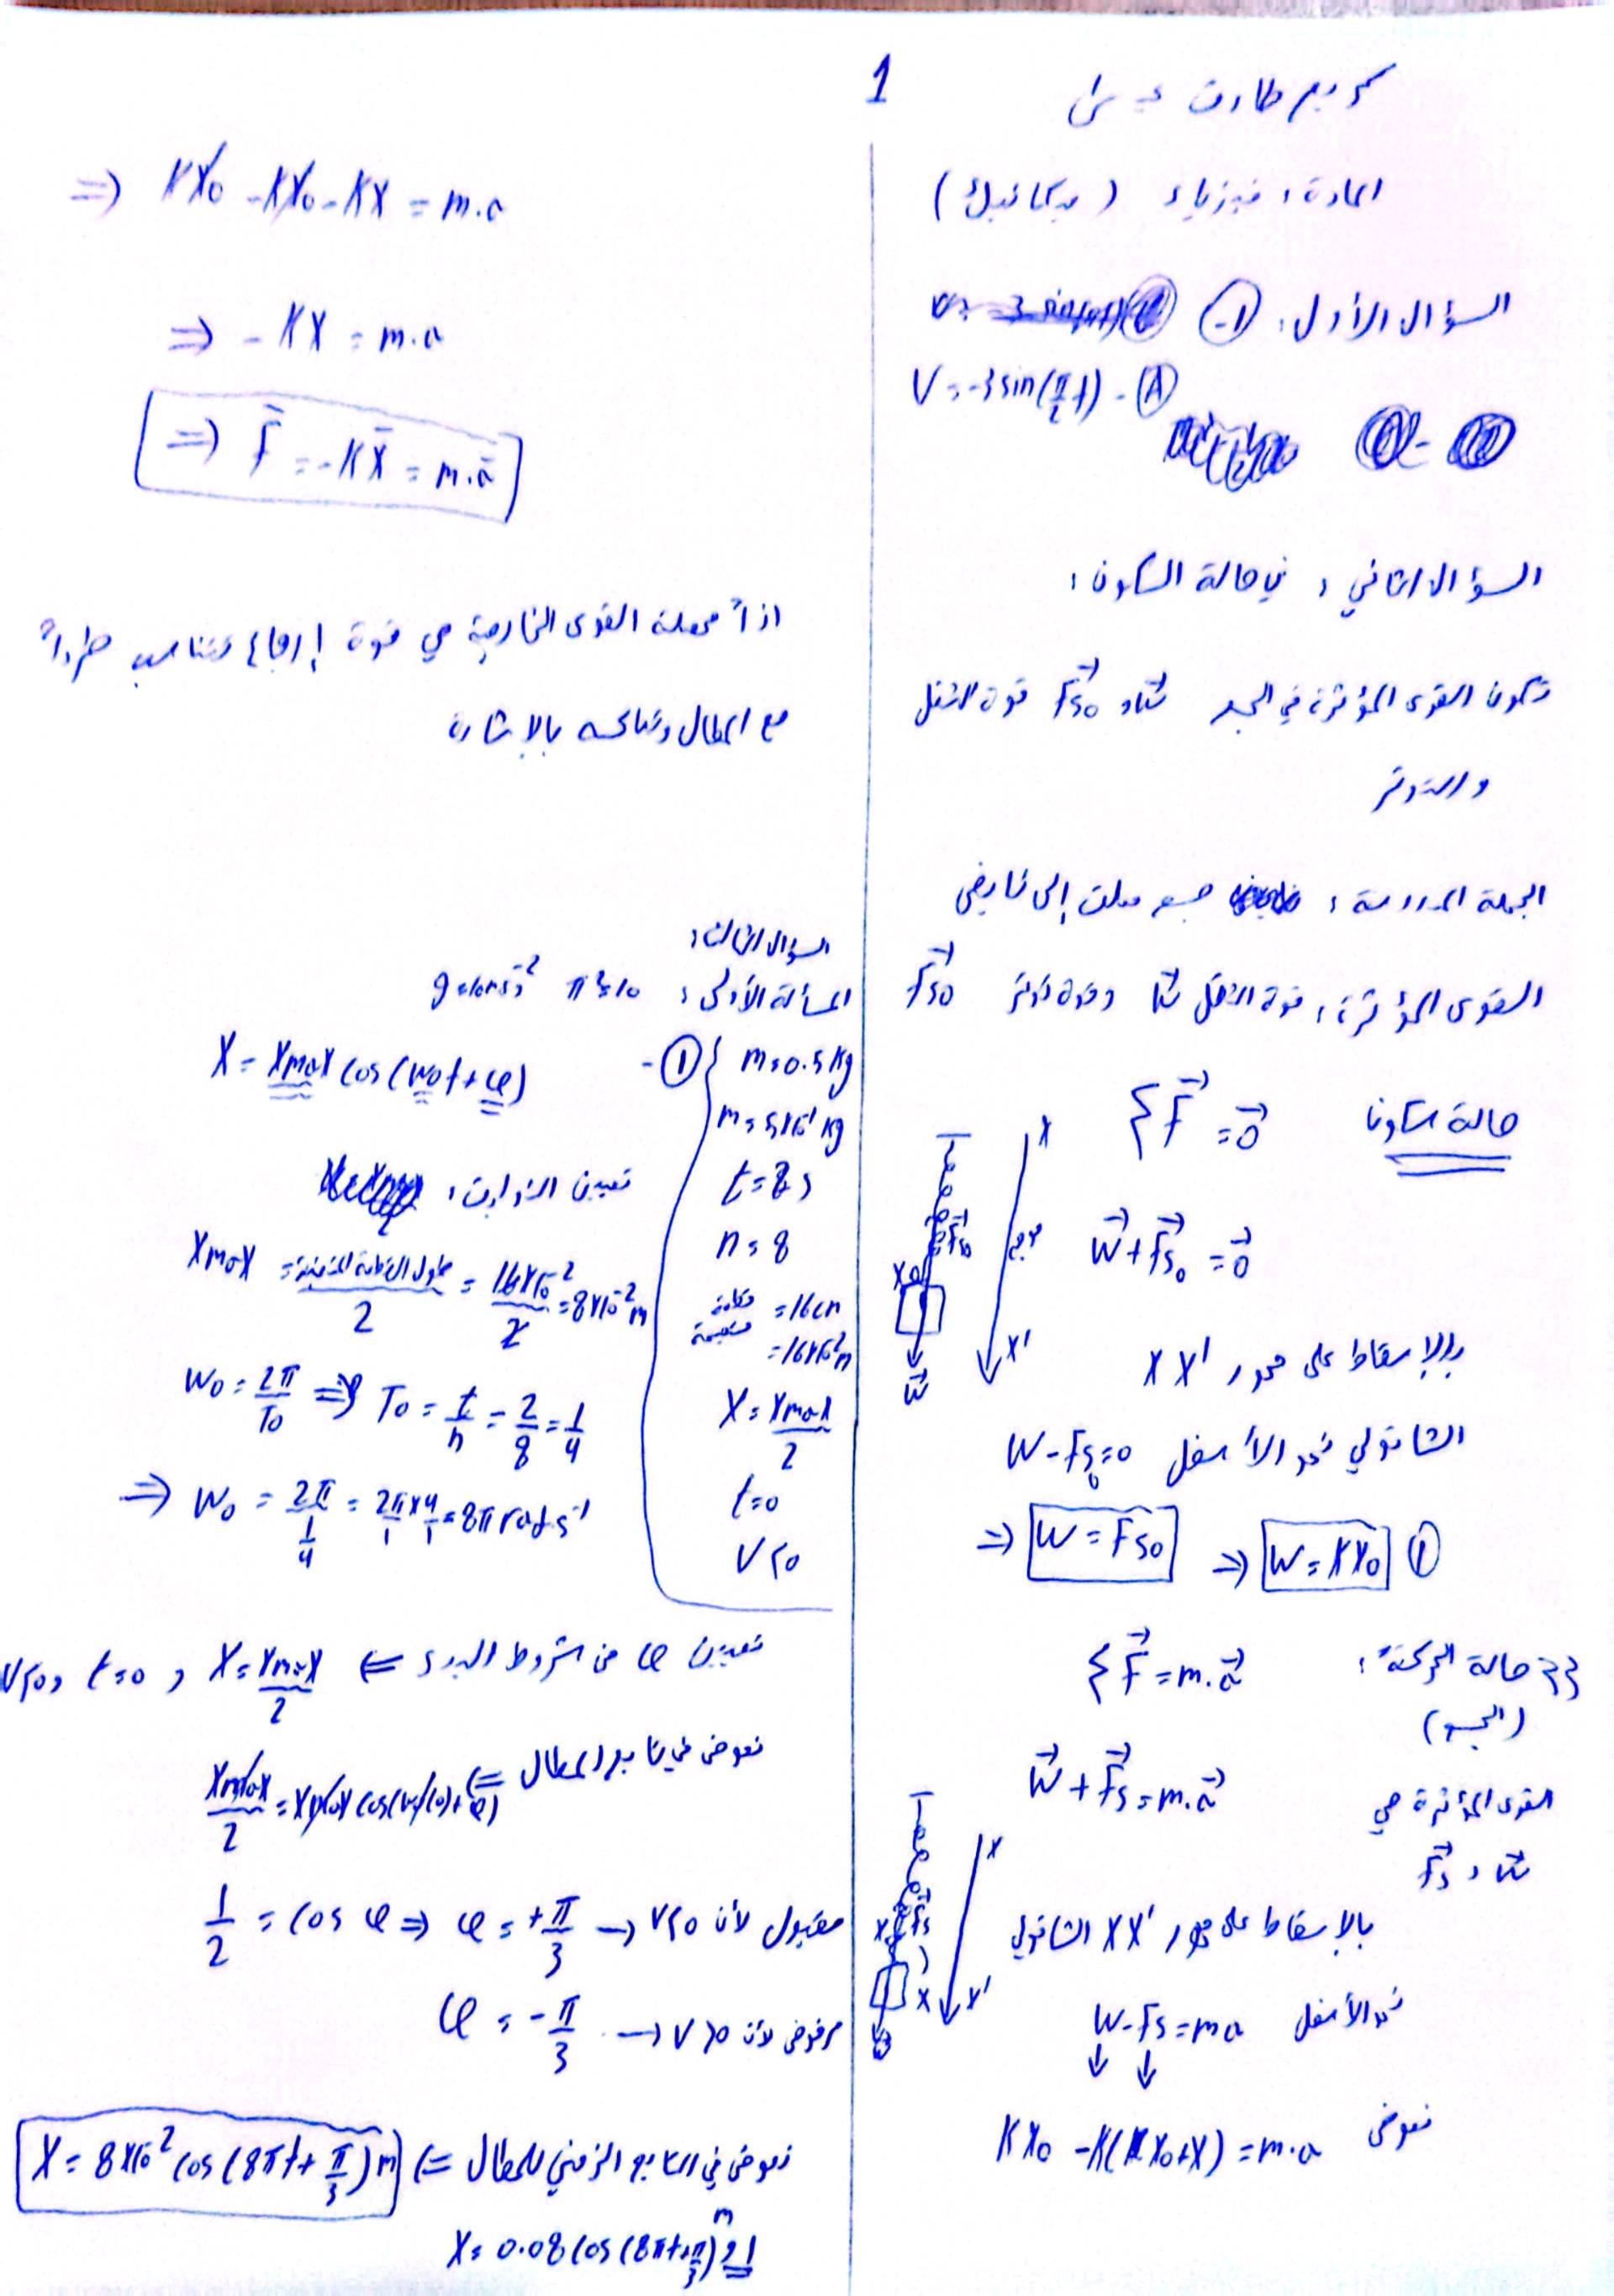 1
كريم طارق
المادة: فيزياء (ميكانيك)
السؤال الأول: 1-
V = -3 sin(π/2 t) - A
السؤال الثاني: في حالة السكون:
تكون القوى المؤثرة في الجسم W⃗ و Fs₀⃗ قوة الثقل
والتوتر
الجملة المدروسة: جسم معلق إلى نابض
القوى المؤثرة: قوة الثقل W⃗ وقوة توتر Fs₀⃗
حالة السكون ΣF⃗ = 0⃗
W⃗ + Fs₀⃗ = 0⃗
بالإسقاط على محور X X'
الشاقولي نحو الأسفل W - Fs₀ = 0
⇒ W = Fs₀ ⇒ W = KX₀ ①
حالة الحركة: ΣF⃗ = m.a⃗
(الجسم)
W⃗ + Fs⃗ = m.a⃗
القوى المؤثرة هي
W⃗ , Fs⃗
بالإسقاط على محور X X' الشاقولي
نحو الأسفل W - Fs = ma
نعوض KX₀ - K(X₀+X) = m.a
⇒ KX₀ - KX₀ - KX = m.a
⇒ -KX = m.a
⇒ F̄ = -KX̄ = m.ā
اذاً محصلة القوى الخارجية هي قوة إرجاع تتناسب طرداً
مع المطال وتعاكسه بالإشارة
السؤال الثالث:
المسألة الأولى: π² = 10 , g = 10 m.s⁻²
m = 0.5 Kg
m = 5×10⁻¹ Kg
t = 2 s
n = 8
قطعة مستقيمة = 16 cm
= 16×10⁻² m
X = Xmax/2
t = 0
V<0
①- X = Xmax cos(ω₀t + φ)
تعيين الثوابت:
Xmax = طول القطعة المستقيمة/2 = 16×10⁻²/2 = 8×10⁻² m
ω₀ = 2π/T₀ ⇒ T₀ = t/n = 2/8 = 1/4
⇒ ω₀ = 2π/(1/4) = 2π/1 × 4/1 = 8π rad.s⁻¹
تعيين φ من شروط البدء ⇐ X = Xmax/2 , t=0 , V<0
نعوض في تابع المطال ⇐ Xmax/2 = Xmax cos(ω₀(0)+φ)
1/2 = cos φ ⇒ φ = +π/3 → مقبول لأن V<0
φ = -π/3 → مرفوض لأن V>0
نعوض في التابع الزمني للمطال ⇐ X = 8×10⁻² cos(8πt + π/3) m
X = 0.08 cos(8πt + π/3) m